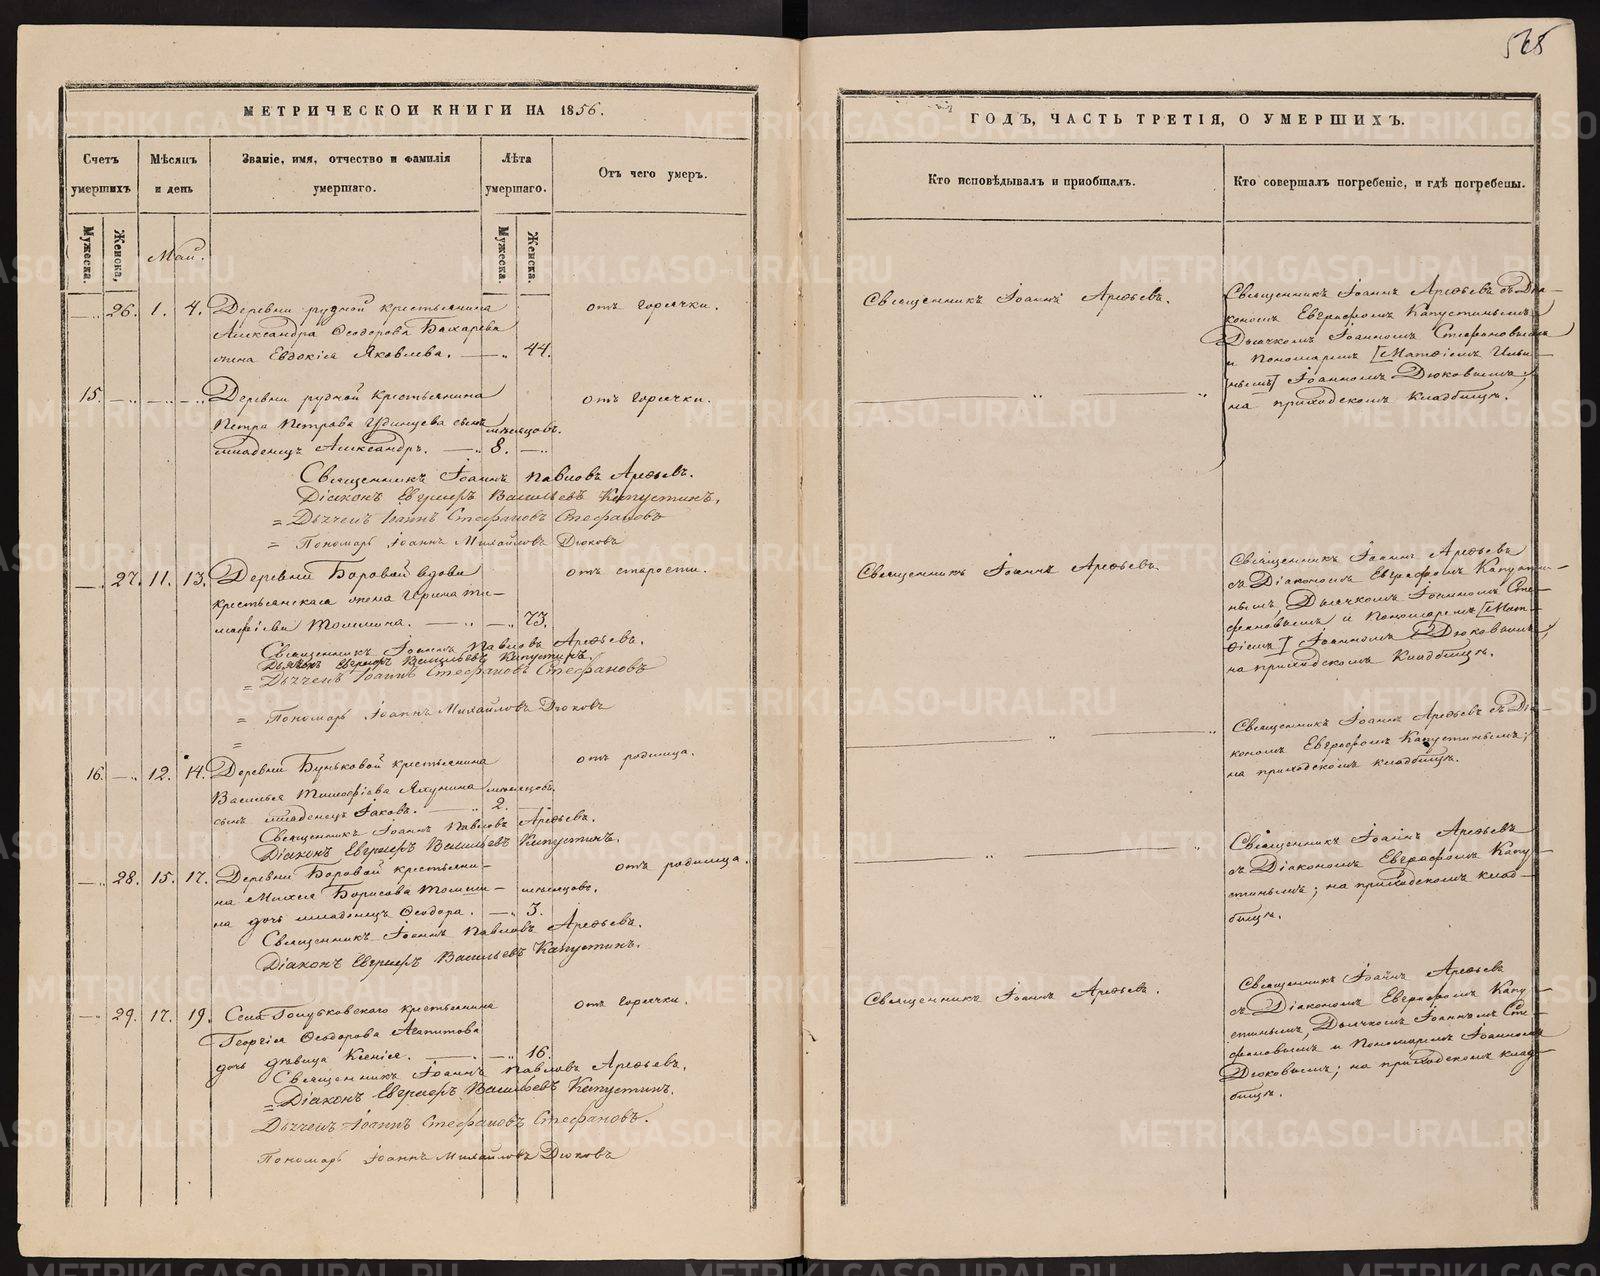 МЕТРИЧЕСКОЙ КНИГИ НА 1856.
Счетъ умершихъ
Мѣсяцъ и день
Званіе, имя, отчество и фамилія умершаго.
Лѣта умершаго.
Отъ чего умеръ.
Мужеска.
Женска.
Май.
Мужеска.
Женска.
26. 1. 4. Деревни рудной крестьянина отъ горячки.
Александра Ѳеодорова Бахарева
жена Евдокія Яковлева. 44.
15. Деревни рудной крестьянина отъ горячки.
Петра Петрова Удинцева сынъ мѣсяцовъ.
младенецъ Александръ. 8.
Священникъ Іоаннъ Павловъ Арефьевъ.
Діаконъ Евграфъ Васильевъ Капустинъ.
= Дьячекъ Іоаннъ Стефановъ Стефановъ
= Пономарь Іоаннъ Михайловъ Дюковъ
27. 11. 13. Деревни Боровой вдова отъ старости.
крестьянская жена Ирина Ти-
мофіева Томшина. 73.
Священникъ Іоаннъ Павловъ Арефьевъ.
Діаконъ Евграфъ Васильевъ Капустинъ.
= Дьячекъ Іоаннъ Стефановъ Стефановъ
= Пономарь Іоаннъ Михайловъ Дюковъ
=
16. 12. 14. Деревни Буньковой крестьянина отъ родимца.
Василья Тимофіева Яхунина мѣсяцовъ.
сынъ младенецъ Іаковъ. 2.
Священникъ Іоаннъ Павловъ Арефьевъ.
Діаконъ Евграфъ Васильевъ Капустинъ.
28. 15. 17. Деревни Боровой крестьяни- отъ родимца.
на Борисова Томши- мѣсяцовъ.
на дочь младенецъ Ѳеодора. 3.
Священникъ Іоаннъ Павловъ Арефьевъ.
Діаконъ Евграфъ Васильевъ Капустинъ.
29. 17. 19. Села Голубковскаго крестьянина отъ горячки.
Георгія Ѳеодорова Агапитова
дочь дѣвица Ксенія. 16.
Священникъ Іоаннъ Павловъ Арефьевъ.
= Діаконъ Евграфъ Васильевъ Капустинъ.
Дьячекъ Іоаннъ Стефановъ Стефановъ.
Пономарь Іоаннъ Михайловъ Дюковъ
ГОДЪ, ЧАСТЬ ТРЕТІЯ, О УМЕРШИХЪ.
Кто исповѣдывалъ и пріобщалъ.
Кто совершалъ погребеніе, и гдѣ погребены.
Священникъ Іоаннъ Арефьевъ.
Священникъ Іоаннъ Арефьевъ съ Діа-
кономъ Евграфомъ Капустинымъ
Дьячкомъ Іоанномъ Стефановымъ
и Пономаремъ [Матѳіемъ Ильи-
нымъ] Іоанномъ Дюковымъ;
на приходскомъ Кладбищѣ.
Священникъ Іоаннъ Арефьевъ.
Священникъ Іоаннъ Арефьевъ
съ Діакономъ Евграфомъ Капусти-
нымъ, Дьячкомъ Іоанномъ Сте-
фановымъ и Пономаремъ [Мат-
ѳіемъ] Іоанномъ Дюковымъ;
на приходскомъ Кладбищѣ.
Священникъ Іоаннъ Арефьевъ съ Діа-
кономъ Евграфомъ Капустинымъ;
на приходскомъ кладбищѣ.
Священникъ Іоаннъ Арефьевъ
съ Діакономъ Евграфомъ Капу-
стинымъ; на приходскомъ клад-
бищѣ.
Священникъ Іоаннъ Арефьевъ.
Священникъ Іоаннъ Арефьевъ
съ Діакономъ Евграфомъ Капу-
стинымъ, Дьячкомъ Іоанномъ Сте-
фановымъ и Пономаремъ Іоанномъ
Дюковымъ; на приходскомъ клад-
бищѣ.
METRIKI.GASO-URAL.RU